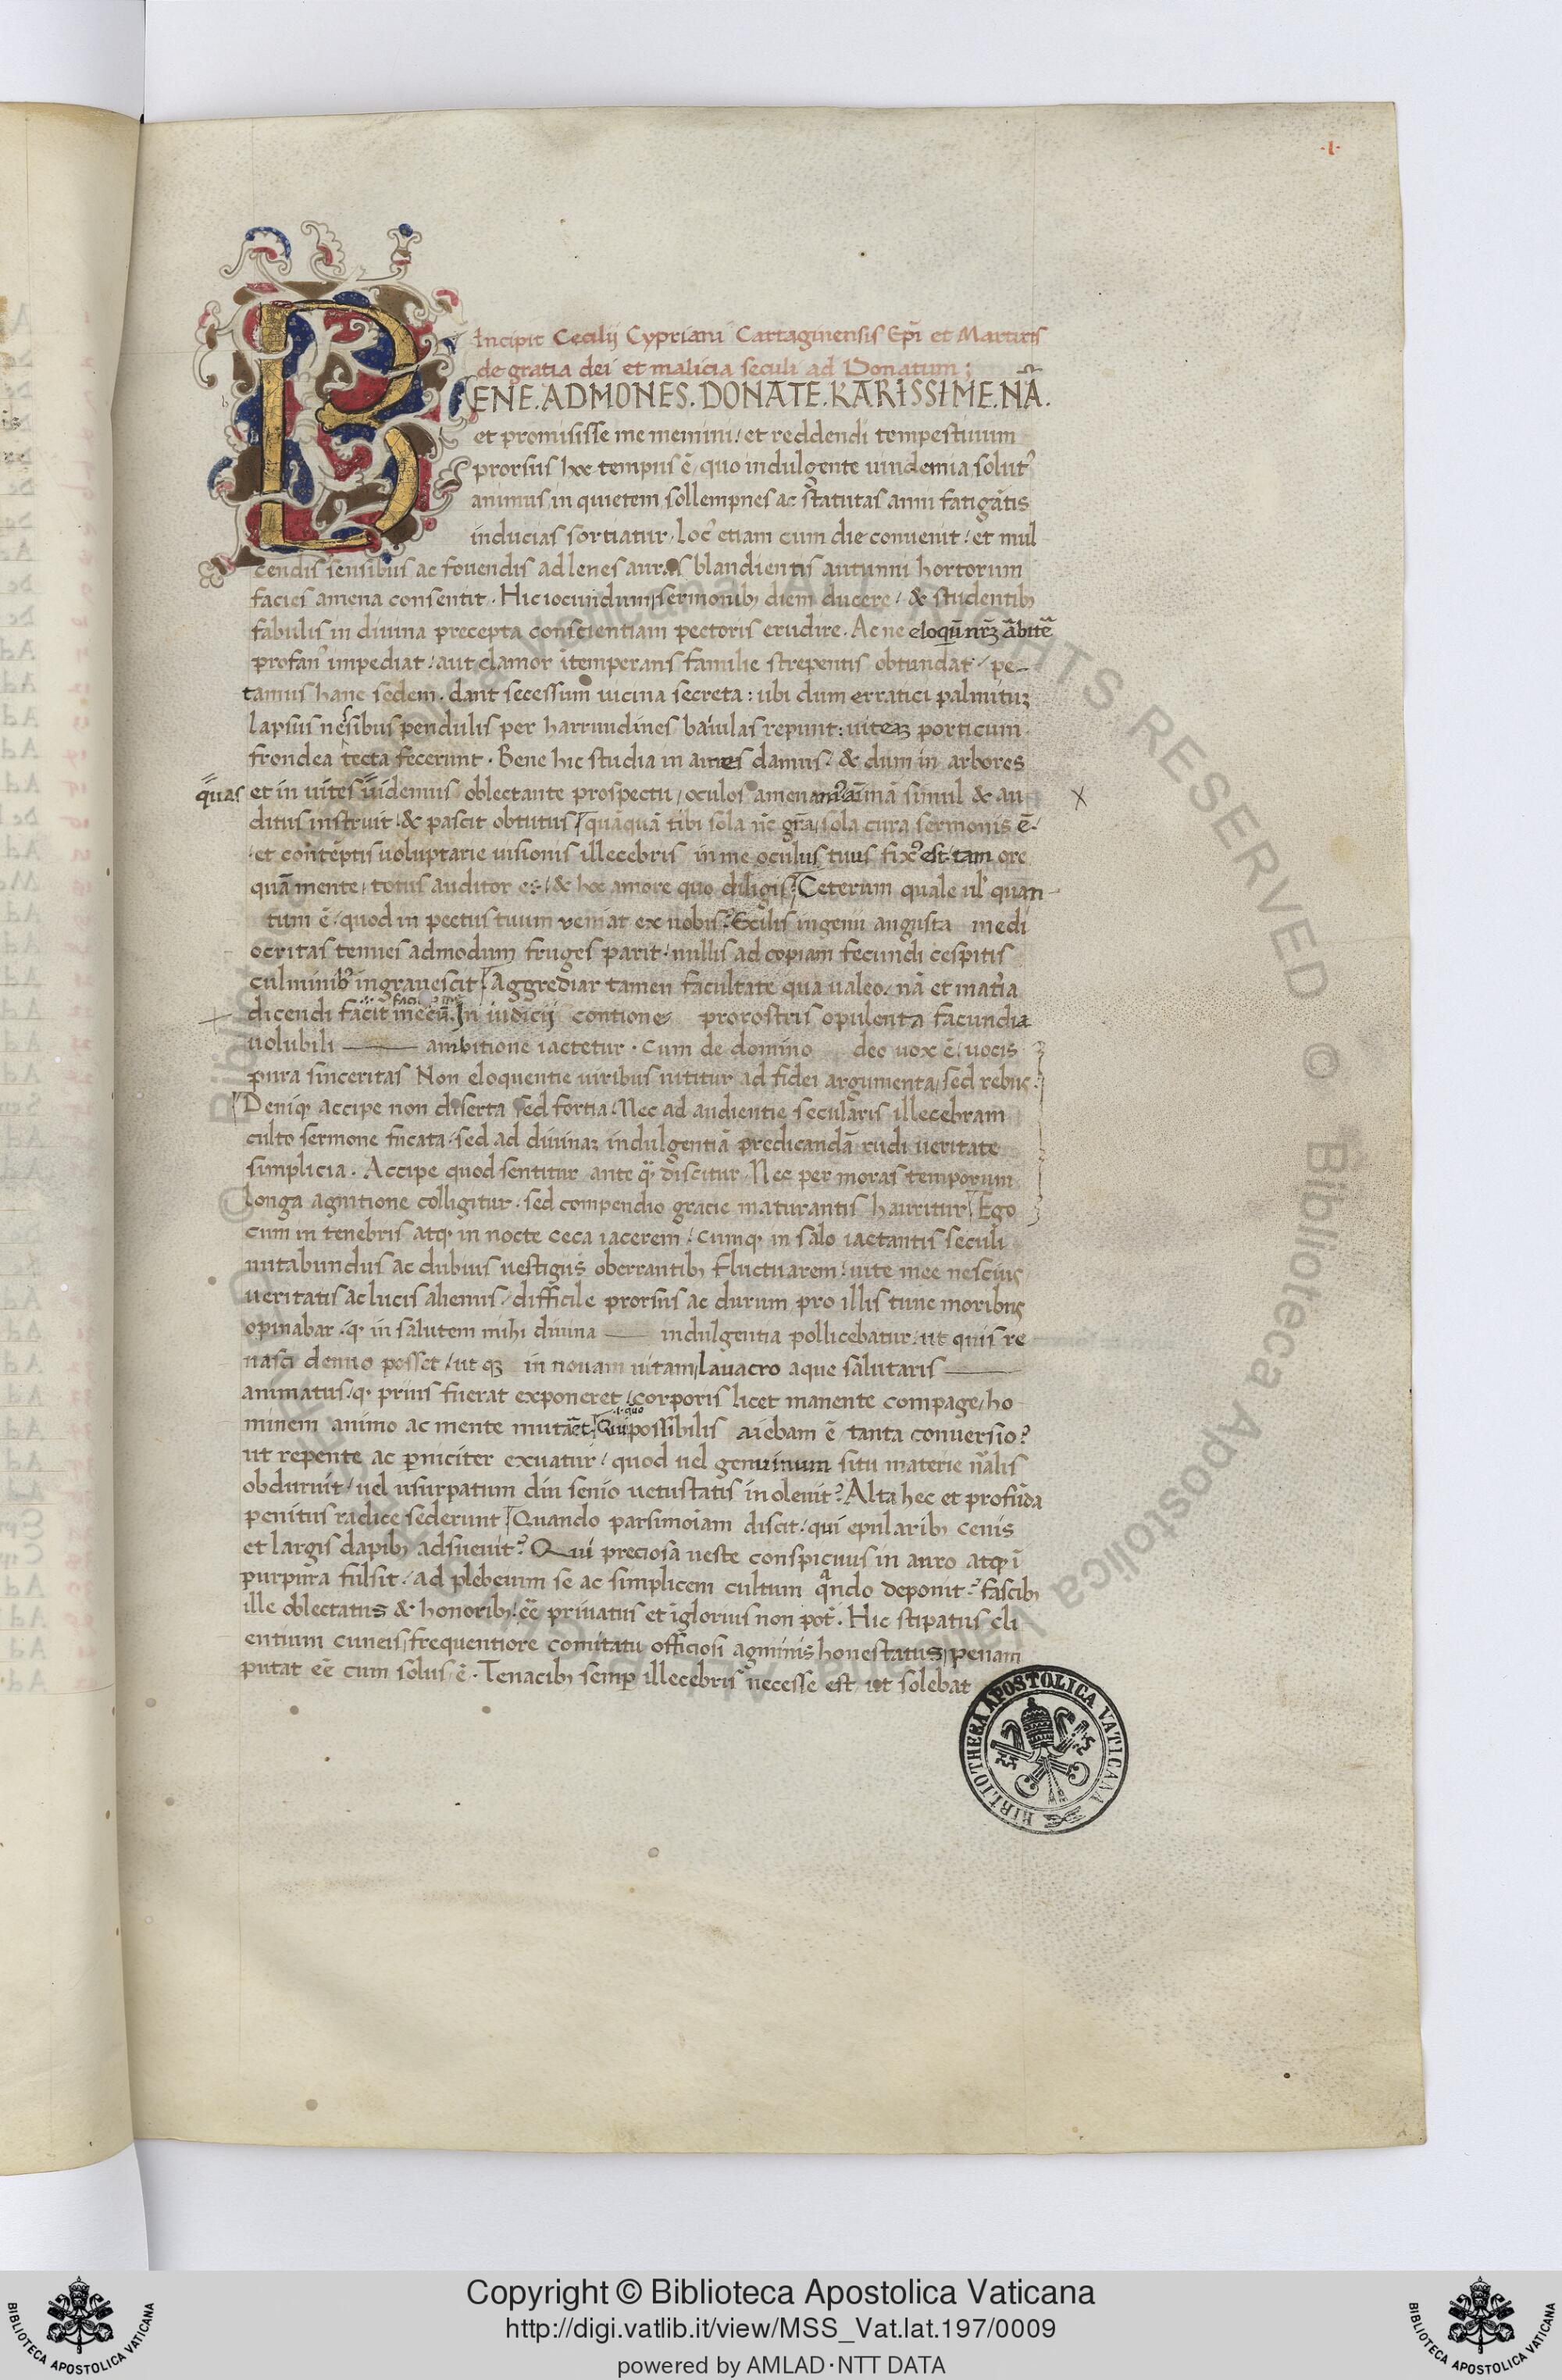 ·1·
Incipit Cecilij Cypriani Cartaginensis Ep̄i et Martiris
de gratia dei et malicia seculi ad Donatum ;
BENE . ADMONES . DONATE . KARISSIME . NĀ .
et promisisse me memini / et reddendi tempestiuum
prorsus hoc tempus ē / quo indulgente uindemia solutꝰ
animus in quietem sollempnes ac statutas anni fatigātis
inducias sortiatur . locꝰ etiam cum die conuenit / et mul
cendis sensibus ac fouendis ad lenes auras blandientis autunni hortorum
facies amena consentit . Hic iocundum sermonibꝫ diem ducere / & studentibꝫ
fabulis in diuina precepta conscientiam pectoris erudire . Ac ne eloqū nr̄ꝫ ābitē
profanꝰ impediat / aut clamor ītemperans familie strepentis obtundat / pe-
tamus hanc sedem . dant secessum uicina secreta : ubi dum erratici palmituꝫ
lapsus nexibus pendulis per harundines baiulas repunt : uiteaꝫ porticum
frondea tecta fecerunt . Bene hic studia in aures damus / & dum in arbores
quas et in uites uidemus oblectante prospectu / oculos amenamꝰ aīmā simul & au
ditus instruit / & pascit obtutus quāquā tibi sola nc̄ gr̄a / sola cura sermonis ē /
et contēptis uoluptarie uisionis illecebris in me oculus tuus fixꝰ est . tam ore
quā mente / totus auditor es / & hoc amore quo diligis . Ceterum quale ul' quan-
tum ē / quod in pectus tuum veniat ex nobis ? Exilis ingenii angusta medi
ocritas tenues admodum fruges parit . nullis ad copiam fecundi cespitis
culminibꝰ ingrauescit Aggrediar tamen facultate qua ualeo . nā et mat'ia
dicendi facit mecū . In iudicij contione prorostris opulenta facundia
uolubili —— ambitione iactetur . cum de domino deo uox ē / uocis
pura sinceritas Non eloquentie uiribus nititur ad fidei argumenta / sed rebus .
Deniqꝫ accipe non diserta sed fortia . Nec ad audientie secularis illecebram
culto sermone fucata . sed ad diuinaꝫ indulgentiā predicandā rudi ueritate
simplicia . Accipe quod sentitur ante q̄ discitur . Nec per moras temporum
longa agnitione colligitur . sed compendio gracie maturantis hauritur Ego
cum in tenebris atqꝫ in nocte ceca iacerem / cumqꝫ in salo iactantis seculi
nutabundus ac dubius uestigiis oberrantibꝫ fluctuarem / uite mee nescius
ueritatis ac lucis alienus / difficile prorsus ac durum pro illis tunc moribus
opinabar . qꝫ in salutem mihi diuina —— indulgentia pollicebatur . ut quis re
nasci denuo posset / ut qꝫ in nouam uitam lauacro aque salutaris ——
animatus / qꝫ prius fuerat exponeret / corporis licet manente compage / ho
minem animo ac mente mutaēt . Qui possibilis aiebam ē tanta conuersio ?
ut repente ac ꝑniciter exuatur / quod uel genuinum situ materie nālis
obduruit / uel usurpatum diu senio uetustatis inoleuit ? Alta hec et profūda
penitus radice sederunt Quando parsimoiam discit / qui epularibꝫ cenis
et largis dapibꝫ adsueuit ? Qui preciosa ueste conspicuus in auro atqꝫ ī
purpura fulsit / ad plebeium se ac simplicem cultum qn̄do deponit ? fascibꝫ
ille oblectatus & honoribꝫ / eē priuatus et īglorius non pōt . Hic stipatus cli
entium cuneis / frequentiore comitatu officiosi agminis honestatus / penam
putat eē cum solus ē . Tenacibꝫ semꝑ illecebris necesse est ut solebat
BIBLIOTHECA APOSTOLICA VATICANA
Copyright © Biblioteca Apostolica Vaticana
http://digi.vatlib.it/view/MSS_Vat.lat.197/0009
powered by AMLAD·NTT DATA
BIBLIOTECA APOSTOLICA VATICANA
BIBLIOTECA APOSTOLICA VATICANA